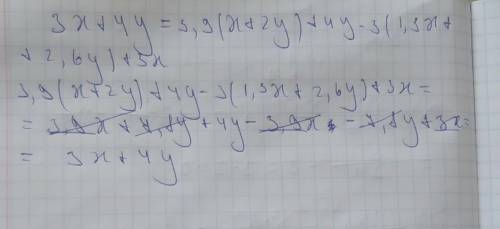 3x+4y=3,9(x+2y)+4y-3(1,3x+
+2,6y)+3x
3,9(x+2y)+4y-3(1,3x+2,6y)+3x=
=3,9x+7,8y+4y-3,9x-7,8y+3x=
=3x+4y